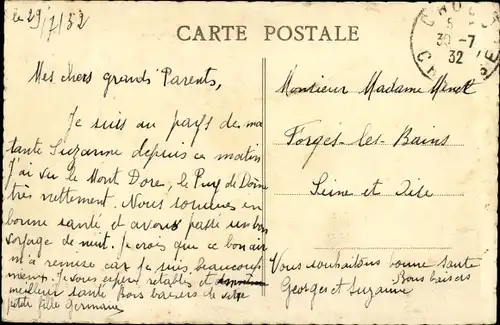 le 29/7/32
CARTE POSTALE
CROS
5
30 - 7
32
CA
SE
Mes chers grands Parents,
Je suis au pays de ma
tante Suzanne depuis ce matin
J'ai vu le Mont Dore, le Puy de Dôme
très nettement. Nous sommes en
bonne santé et avons passé un bon
voyage de nuit. Je crois que ce bon air
m'a remise car je suis beaucoup
mieux. Je vous espère rétablis et
meilleur santé Bons baisers de votre
petite fille Germaine
Monsieur Madame
Forges-les-Bains
Seine et Oise
Vous souhaitons bonne santé
Bons baisers
Georges et Suzanne